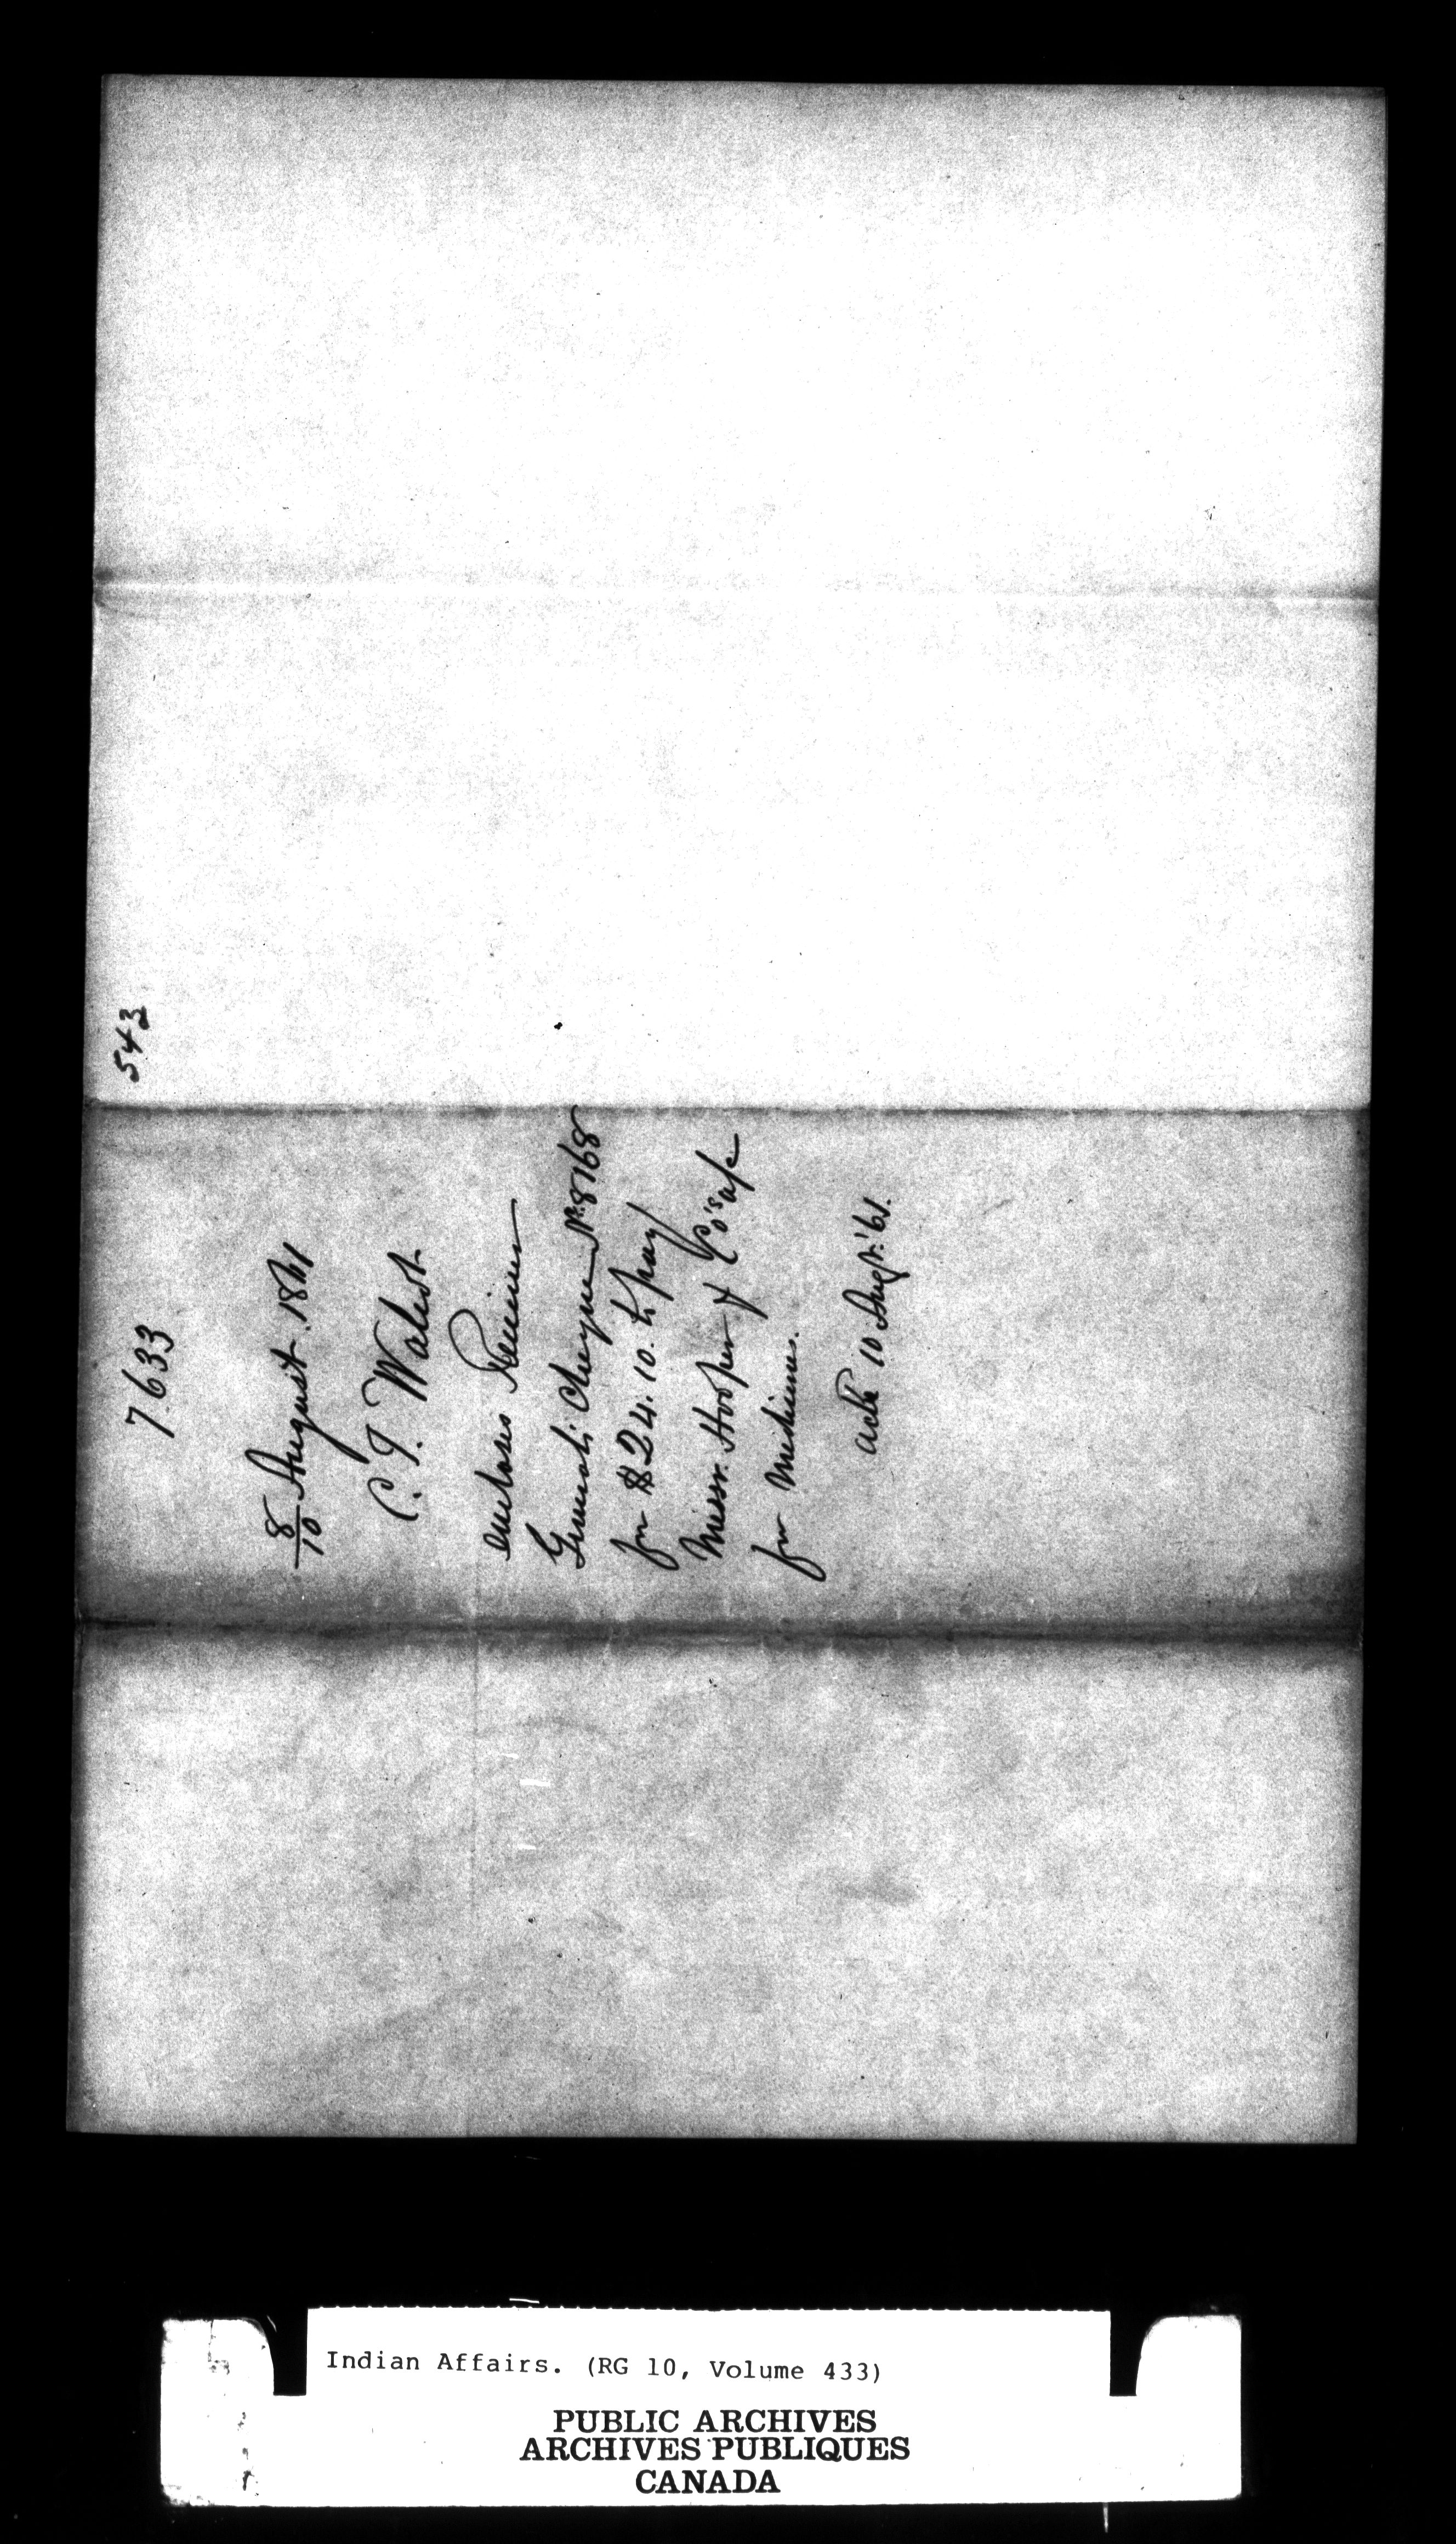 543
7633
8/10 August 1861
C. T. Walcot
encloses Receiver
General's Cheque No. 8168
for $24.10. to pay
Messrs. Hooper & Co's a/c
for Medicines.
ackd 10 Augt. '61.
Indian Affairs. (RG 10, Volume 433)
PUBLIC ARCHIVES
ARCHIVES PUBLIQUES
CANADA